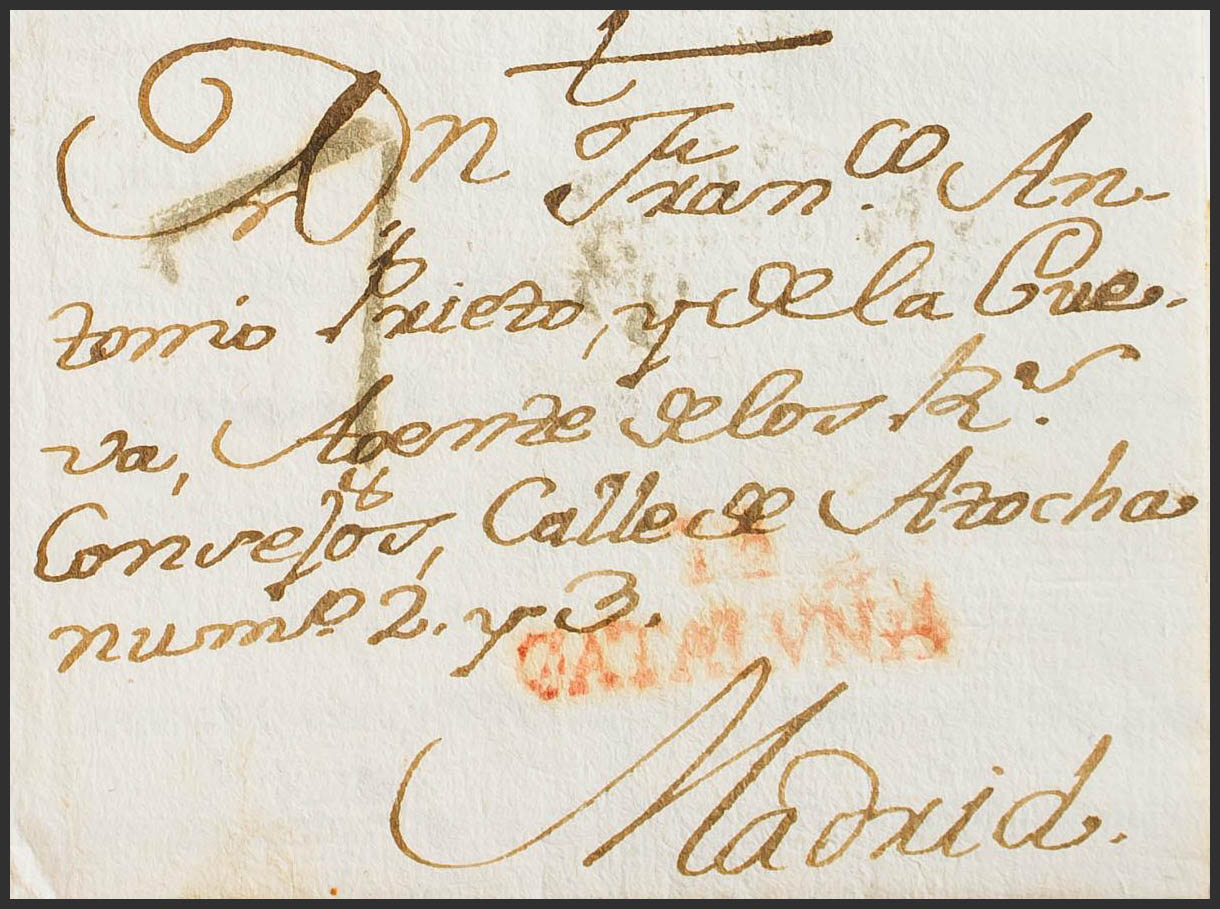 Dn Fran.co An-
tonio Prieto, y de la Cue-
va, Agente de los R.s
Consejos, Calle de Atocha
num.o 2. y 3.
CATALVÑA
Madrid.